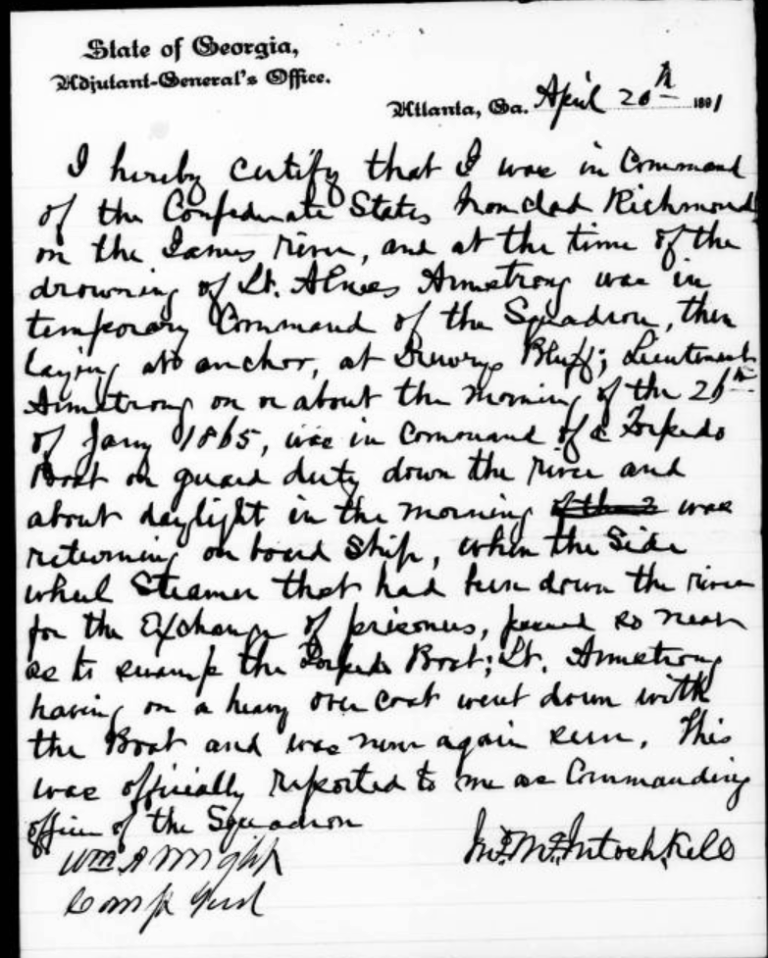 State of Georgia,
Adjutant-General's Office.
Atlanta, Ga. April 20th 1891
I hereby certify that I was in Command
of the Confederate States Ironclad Richmond
on the James river, and at the time of the
drowning of Lt. Armstrong was in
temporary Command of the Squadron, then
laying at anchor, at Drewrys Bluff; Lieutenant
Armstrong on or about the morning of the 26th
of Jany 1865, was in Command of a Torpedo
Boat on guard duty down the river and
about daylight in the morning of the 2 was
returning on board Ship, when the Side
wheel Steamer that had been down the river
for the Exchange of prisoners, passed so near
as to swamp the Torpedo Boat; Lt. Armstrong
having on a heavy over coat went down with
the Boat and was never again seen. This
was officially reported to me as Commanding
officer of the Squadron
Jno. McIntosh Kell
Wm A Wright
Comp Genl